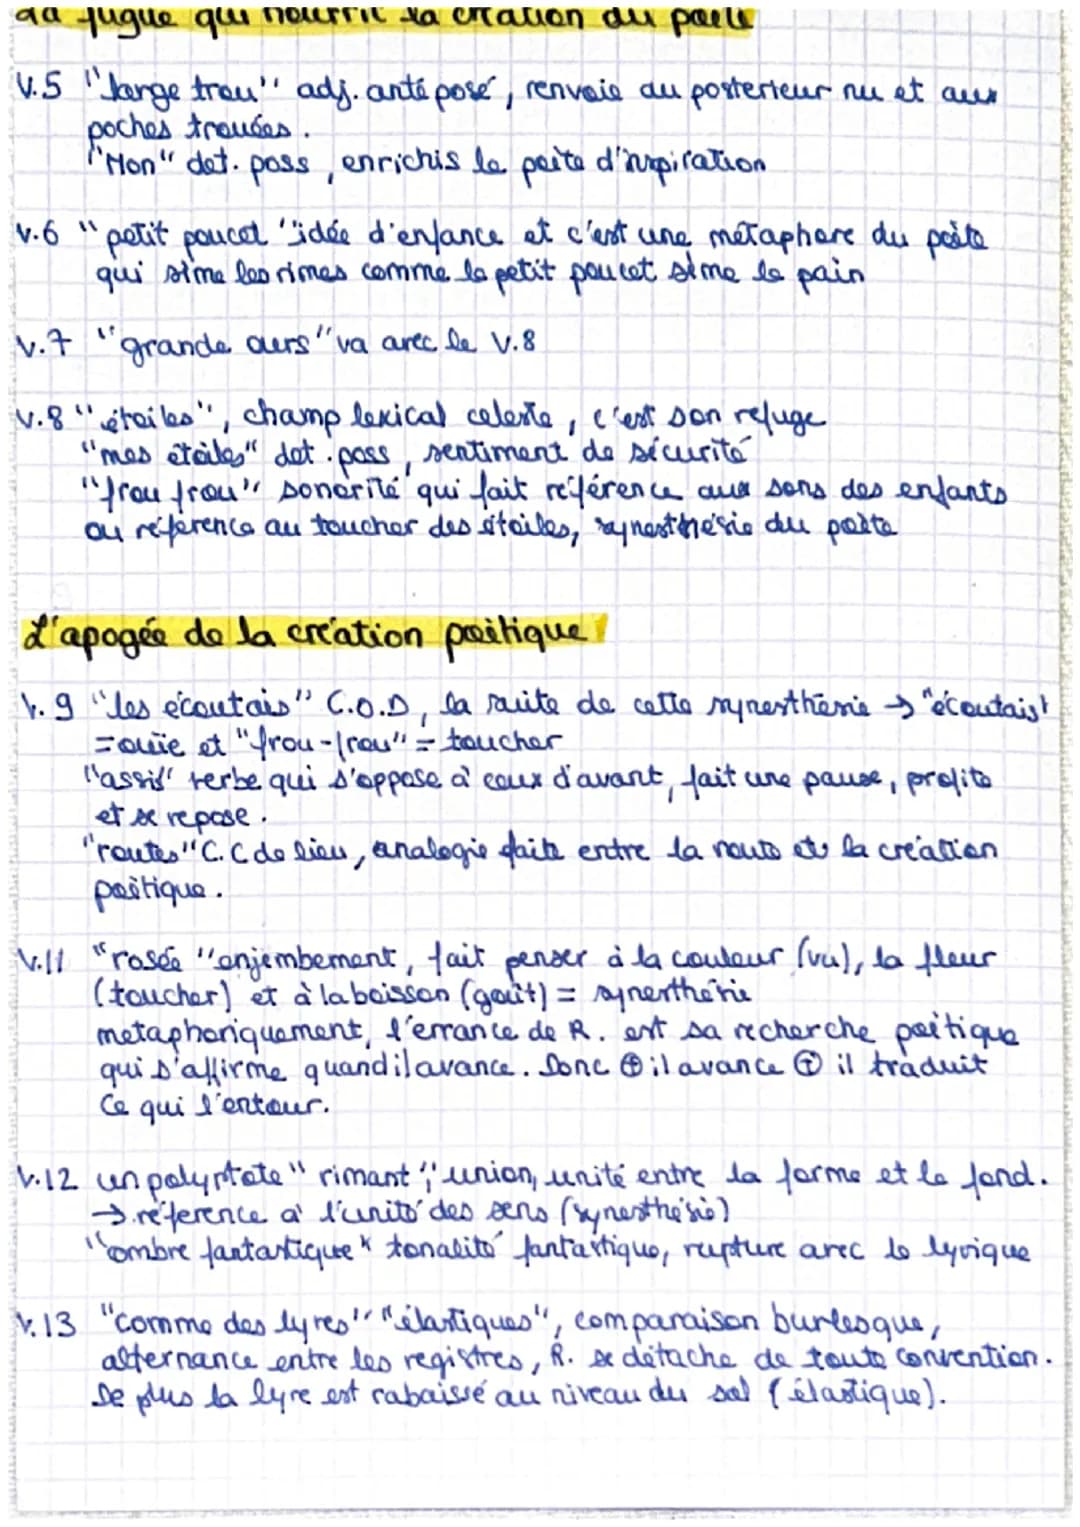 la fugue qui nourrit la création du poète
V.5 "large trou" adj. antéposé, renvoie au posterieur nu et aux
poches trouées.
"Mon" det. poss, enrichis le poète d'inspiration
V.6 "petit poucet" idée d'enfance et c'est une métaphore du poète
qui sème les rimes comme le petit poucet sème le pain
V.7 "grande ours" va avec le V.8
V.8 "étoiles", champ lexical celeste, c'est son refuge
"mes étoiles" det. poss, sentiment de sécurité
"frou frou" sonorité qui fait référence aux sons des enfants
ou référence au toucher des étoiles, synesthésie du poète
L'apogée de la création poétique
V.9 "les écoutais" C.O.D, la suite de cette synesthésie → "écoutais"
= ouïe et "frou-frou" = toucher
"assis" verbe qui s'oppose à ceux d'avant, fait une pause, profite
et se repose.
"routes" C.C de lieu, analogie faite entre la route et la création
poétique.
V.11 "rosée" enjembement, fait penser à la couleur (vu), la fleur
(toucher) et à la boisson (goût) = synesthésie
metaphoriquement, l'errance de R. est sa recherche poétique
qui s'affirme quand il avance. Donc ⊕ il avance ⊕ il traduit
ce qui l'entour.
V.12 un polyptote "rimant", union, unité entre la forme et le fond.
→ référence à l'unité des sens (synesthésie)
"ombre fantastique" tonalité fantastique, rupture avec le lyrique
V.13 "comme des lyres" "élastiques", comparaison burlesque,
alternance entre les registres, R. se détache de toute convention.
De plus la lyre est rabaissé au niveau du sol (élastique).